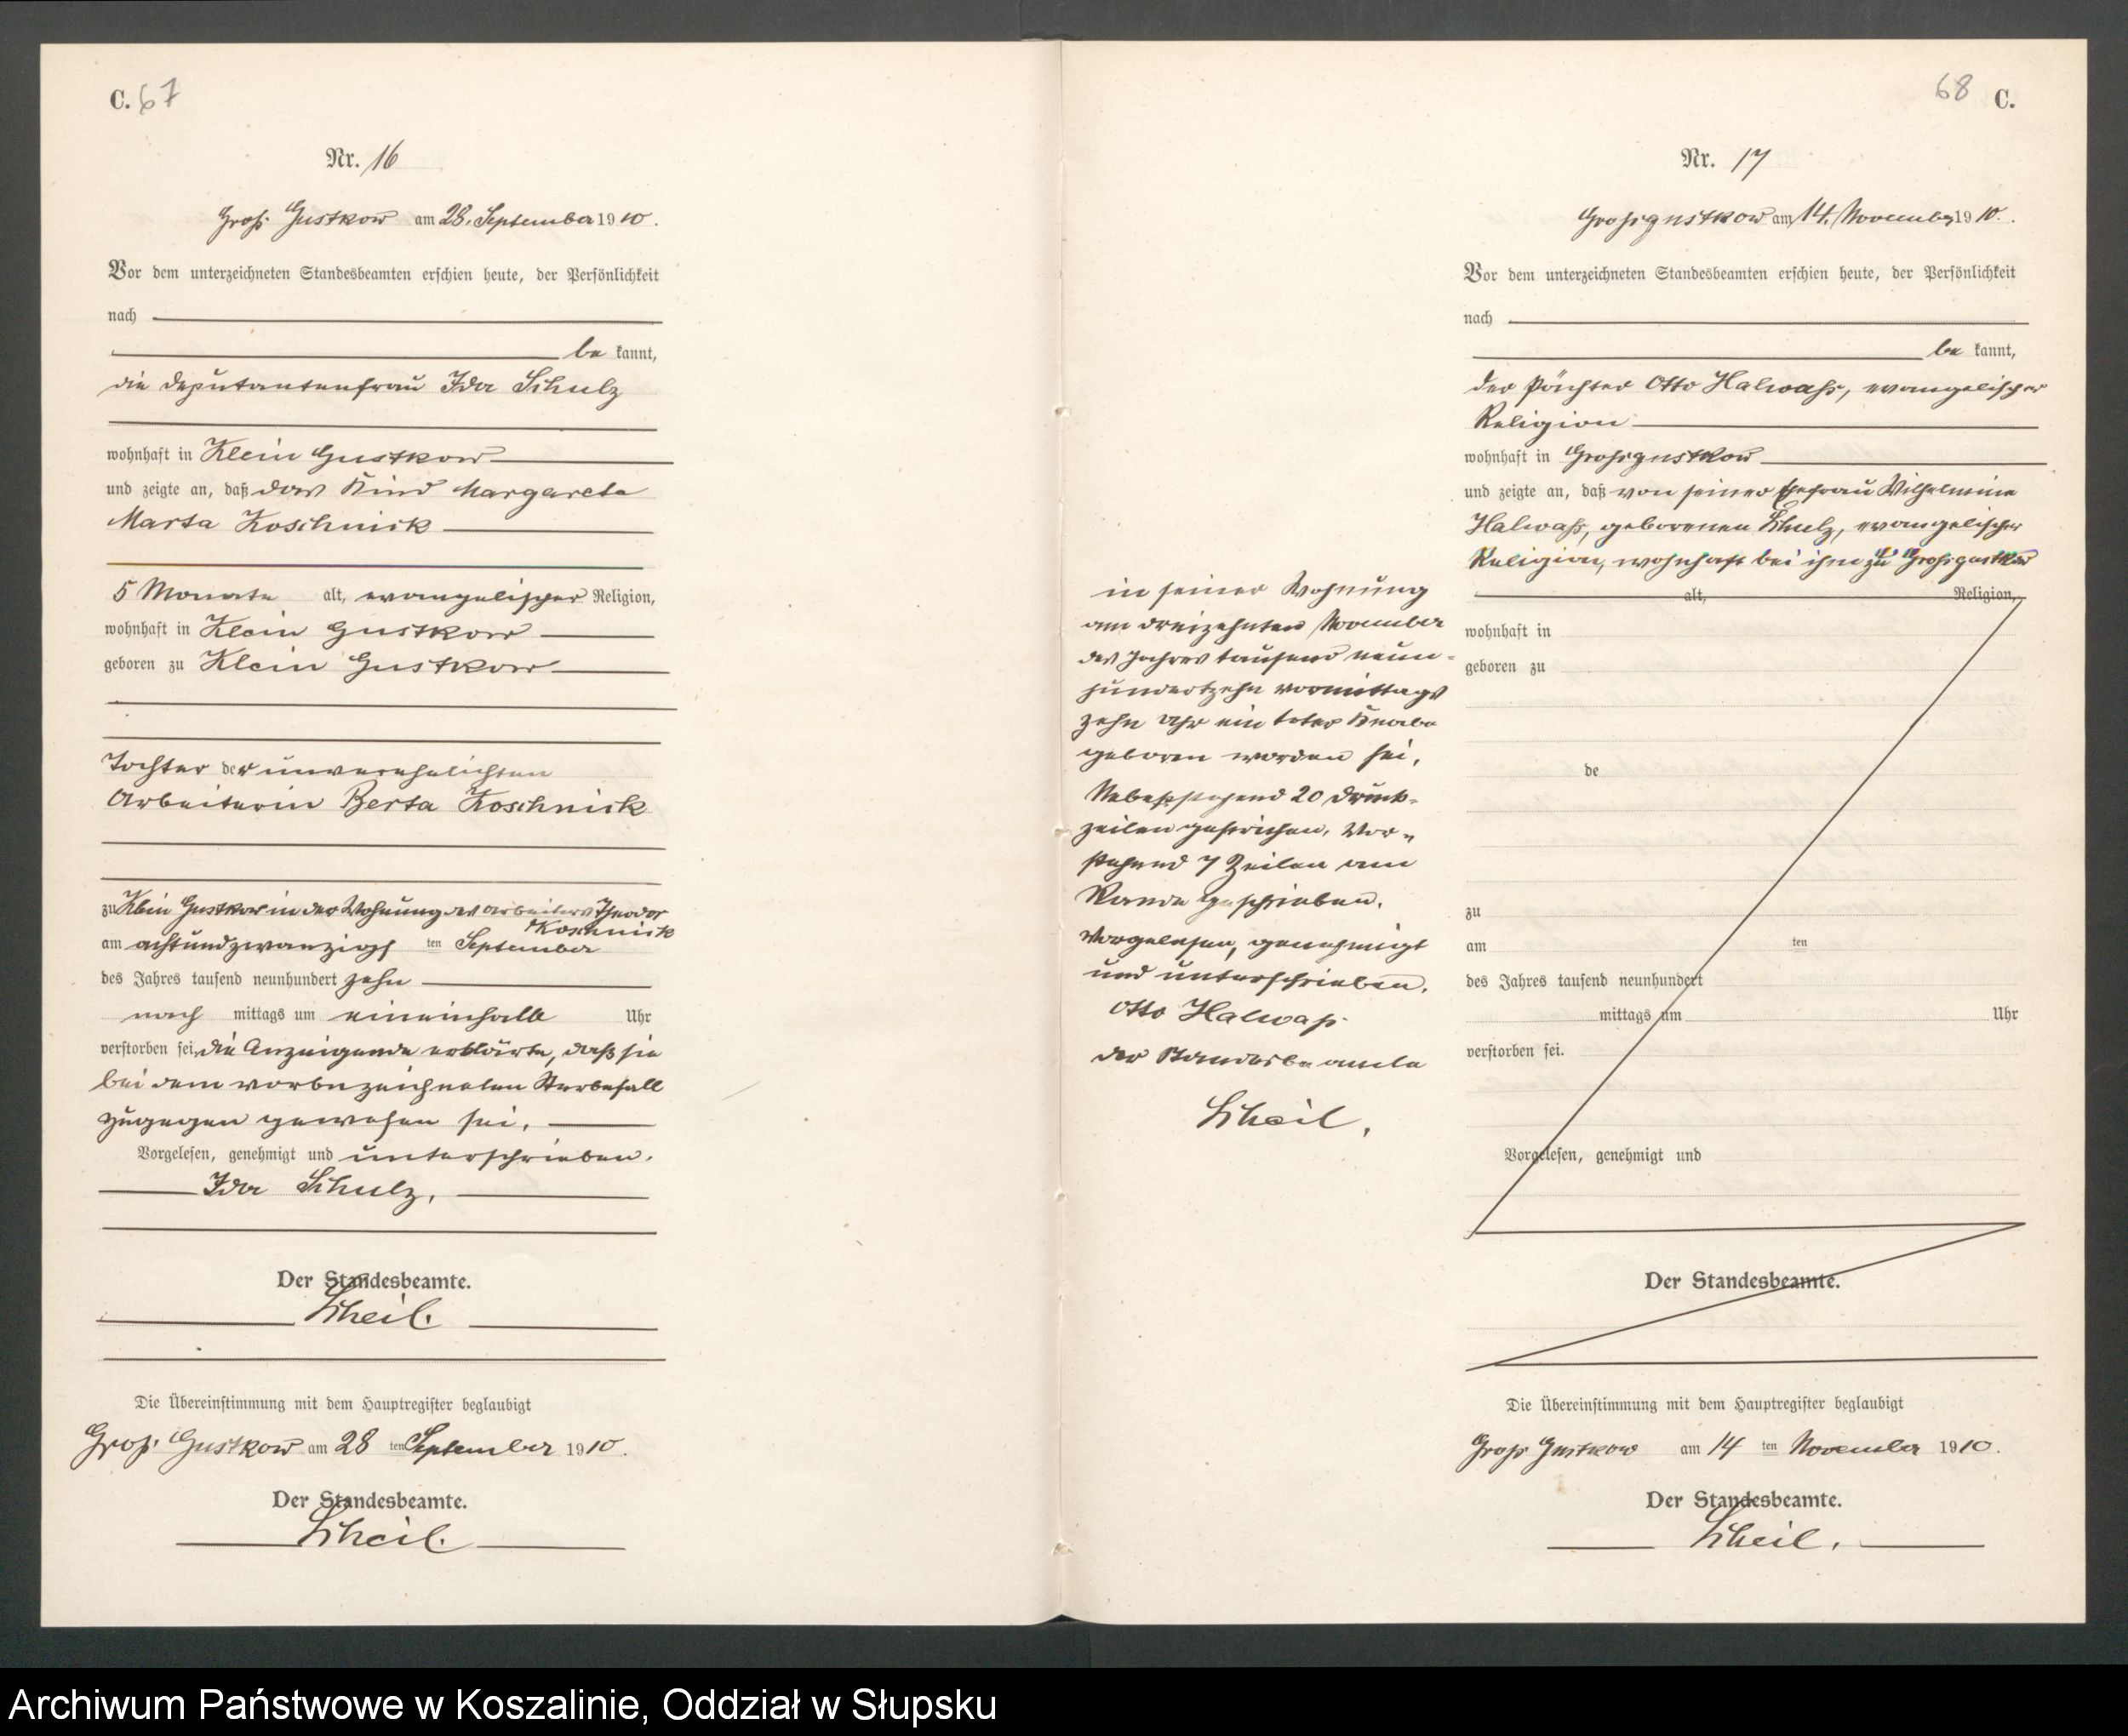 C. 67
Nr. 16
Groß Gustkow am 28. September 1910.
Vor dem unterzeichneten Standesbeamten erschien heute, der Persönlichkeit
nach
be kannt,
die Deputantenfrau Ida Schulz
wohnhaft in Klein Gustkow
und zeigte an, daß das Kind Margareta
Marta Koschnick
5 Monate alt, evangelischer Religion,
wohnhaft in Klein Gustkow
geboren zu Klein Gustkow
Tochter der unverehelichten
Arbeiterin Berta Koschnick
zu Klein Gustkow in der Wohnung des Arbeiters Theodor
Koschnick
am achtundzwanzigsten September
des Jahres tausend neunhundert zehn
nach mittags um eineinhalb Uhr
verstorben sei, die Anzeigende erklärte, daß sie
bei dem vorbezeichneten Sterbefall
zugegen gewesen sei.
Vorgelesen, genehmigt und unterschrieben.
Ida Schulz.
Der Standesbeamte.
Scheil.
Die Übereinstimmung mit dem Hauptregister beglaubigt
Groß Gustkow am 28 ten September 1910.
Der Standesbeamte.
Scheil.
68 C.
Nr. 17
Großgustkow am 14. November 1910.
Vor dem unterzeichneten Standesbeamten erschien heute, der Persönlichkeit
nach
be kannt,
der Pächter Otto Halwaß, evangelischer
Religion
wohnhaft in Großgustkow
und zeigte an, daß von seiner Ehefrau Wilhelmine
Halwaß, geborenen Schulz, evangelischer
Religion, wohnhaft bei ihm zu Großgustkow
alt, Religion,
wohnhaft in
geboren zu
de
zu
am ten
des Jahres tausend neunhundert
mittags um Uhr
verstorben sei.
Vorgelesen, genehmigt und
in seiner Wohnung
am dreizehnten November
des Jahres tausend neun-
hundertzehn vormittags
zehn Uhr ein toter Knabe
geboren worden sei.
Nebenstehend 20 Druck-
zeilen gestrichen. Vor-
stehend 7 Zeilen am
Rande geschrieben.
Vorgelesen, genehmigt
und unterschrieben.
Otto Halwaß
der Standesbeamte
Scheil.
Der Standesbeamte.
Die Übereinstimmung mit dem Hauptregister beglaubigt
Groß Gustkow am 14 ten November 1910.
Der Standesbeamte.
Scheil.
Archiwum Państwowe w Koszalinie, Oddział w Słupsku